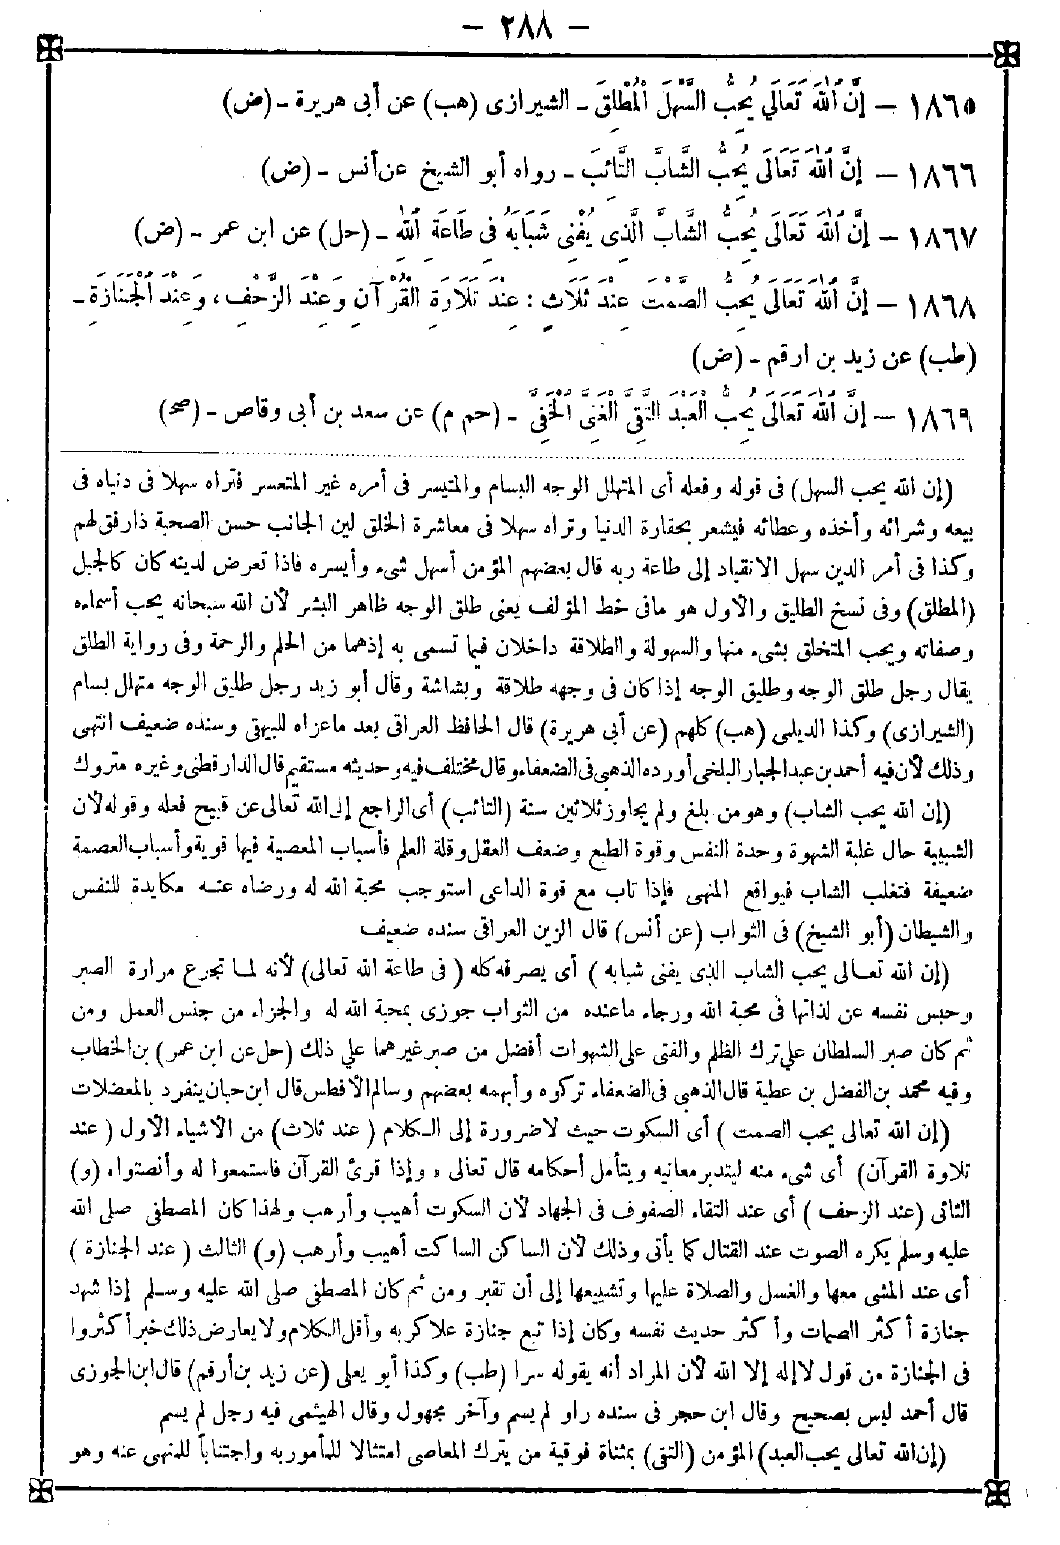 - ٢٨٨ -
١٨٦٥ - إِنَّ اللهَ تَعَالَى يُحِبُّ السَّهْلَ الْمُطْلَقَ - الشيرازى (هب) عن أبى هريرة - (ض)
١٨٦٦ - إِنَّ اللهَ تَعَالَى يُحِبُّ الشَّابَّ التَّائِبَ - رواه أبو الشيخ عن أنس - (ض)
١٨٦٧ - إِنَّ اللهَ تَعَالَى يُحِبُّ الشَّابَّ الَّذِى يُفْنِى شَبَابَهُ فِى طَاعَةِ اللهِ - (حل) عن ابن عمر - (ض)
١٨٦٨ - إِنَّ اللهَ تَعَالَى يُحِبُّ الصَّمْتَ عِنْدَ ثَلَاثٍ : عِنْدَ تِلَاوَةِ الْقُرْآنِ وَعِنْدَ الزَّحْفِ، وَعِنْدَ الْجَنَازَةِ -
(طب) عن زيد بن ارقم - (ض)
١٨٦٩ - إِنَّ اللهَ تَعَالَى يُحِبُّ الْعَبْدَ التَّقِىَّ الْغَنِىَّ الْخَفِىَّ - (حم م) عن سعد بن أبى وقاص - (صح)
(إن الله يحب السهل) فى قوله وفعله أى المتهلل الوجه البسام والمتيسر فى أمره غير المتعسر فتراه سهلا فى دنياه فى
بيعه وشرائه وأخذه وعطائه فيشعر بحقارة الدنيا وتراه سهلا فى معاشرة الخلق لين الجانب حسن الصحبة ذا رفق لهم
وكذا فى أمر الدين سهل الانقياد إلى طاعة ربه قال بعضهم المؤمن أسهل شىء وأيسره فاذا تعرض لدينه كان كالجبل
(المطلق) وفى نسخ الطليق والأول هو مافى خط المؤلف يعنى طلق الوجه ظاهر البشر لأن الله سبحانه يحب أسماءه
وصفاته ويحب المتخلق بشىء منها والسهولة والطلاقة داخلان فيما تسمى به إذهما من الحلم والرحمة وفى رواية الطلق
يقال رجل طلق الوجه وطليق الوجه إذا كان فى وجهه طلاقة وبشاشة وقال أبو زيد رجل طليق الوجه متهلل بسام
(الشيرازى) وكذا الديلمى (هب) كلهم (عن أبى هريرة) قال الحافظ العراقى بعد ماعزاه للبيهقى وسنده ضعيف انتهى
وذلك لأن فيه أحمد بن عبد الجبار البلخى أورده الذهبى فى الضعفاء وقال مختلف فيه وحديثه مستقيم قال الدارقطنى وغيره متروك
(إن الله يحب الشاب) وهو من بلغ ولم يجاوز ثلاثين سنة (التائب) أى الراجع إلى الله تعالى عن قبيح فعله وقوله لأن
الشبيبة حال غلبة الشهوة وحدة النفس وقوة الطبع وضعف العقل وقلة العلم فأسباب المعصية فيها قوية وأسباب العصمة
ضعيفة فتغلب الشاب فيواقع المنهى فإذا تاب مع قوة الداعى استوجب محبة الله له ورضاه عنه مكايدة للنفس
والشيطان (أبو الشيخ) فى الثواب (عن أنس) قال الزين العراقى سنده ضعيف
(إن الله تعالى يحب الشاب الذى يفنى شبابه) أى يصرفه كله (فى طاعة الله تعالى) لأنه لما تجرع مرارة الصبر
وحبس نفسه عن لذاتها فى محبة الله ورجاء ماعنده من الثواب جوزى بمحبة الله له والجزاء من جنس العمل ومن
ثم كان صبر السلطان على ترك الظلم والفتى على الشهوات أفضل من صبر غيرهما على ذلك (حل عن ابن عمر) بن الخطاب
وفيه محمد بن الفضل بن عطية قال الذهبى فى الضعفاء تركوه وأبهمه بعضهم وسالم الأفطس قال ابن حبان ينفرد بالمعضلات
(إن الله تعالى يحب الصمت) أى السكوت حيث لاضرورة إلى الكلام (عند ثلاث) من الأشياء الأول (عند
تلاوة القرآن) أى شىء منه ليتدبر معانيه ويتأمل أحكامه قال تعالى ، وإذا قرئ القرآن فاستمعوا له وأنصتوا، (و)
الثانى (عند الزحف) أى عند التقاء الصفوف فى الجهاد لأن السكوت أهيب وأرهب ولهذا كان المصطفى صلى الله
عليه وسلم يكره الصوت عند القتال كما يأتى وذلك لأن الساكن الساكت أهيب وأرهب (و) الثالث (عند الجنازة)
أى عند المشى معها والغسل والصلاة عليها وتشييعها إلى أن تقبر ومن ثم كان المصطفى صلى الله عليه وسلم إذا شهد
جنازة أكثر الصمات وأكثر حديث نفسه وكان إذا تبع جنازة علا كربه وأقل الكلام ولا يعارض ذلك خبر أكثروا
فى الجنازة من قول لا إله إلا الله لأن المراد أنه يقوله سرا (طب) وكذا أبو يعلى (عن زيد بن أرقم) قال ابن الجوزى
قال أحمد ليس بصحيح وقال ابن حجر فى سنده راو لم يسم وآخر مجهول وقال الهيثمى فيه رجل لم يسم
(إن الله تعالى يحب العبد) المؤمن (التقى) بمثناة فوقية من يترك المعاصى امتثالا للمأمور به واجتناباً للمنهى عنه وهو